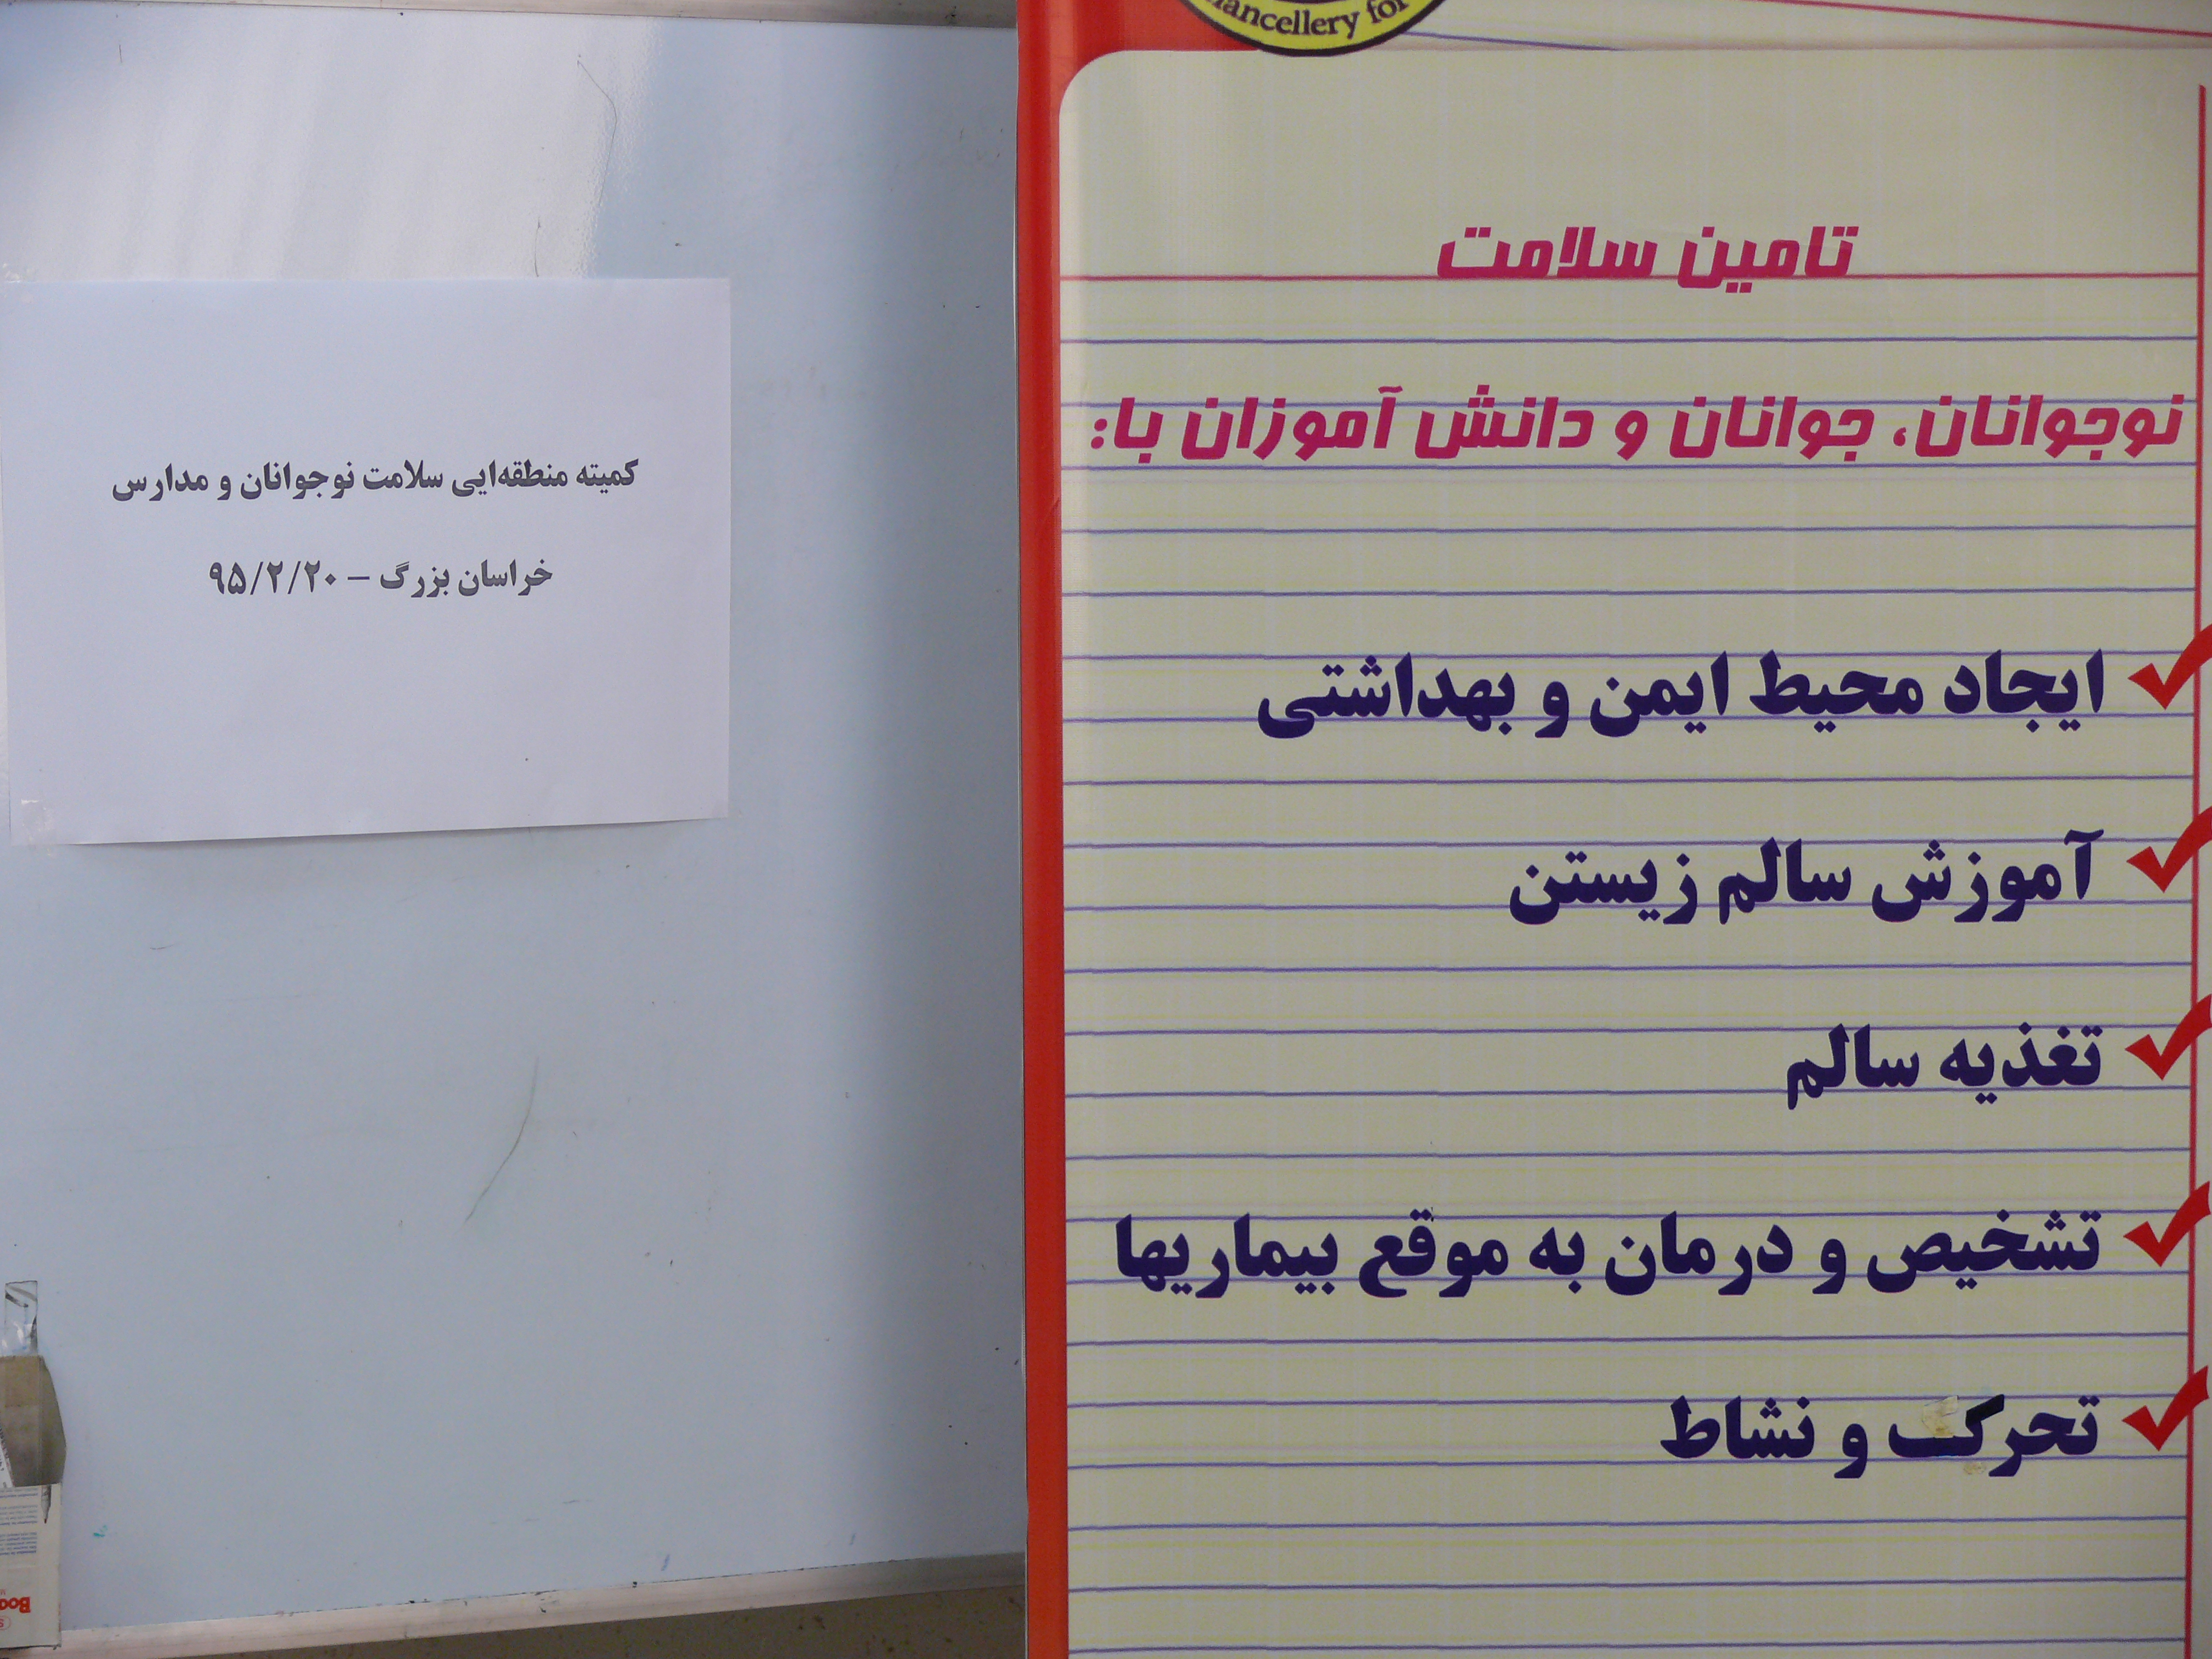 ancellery for
تامین سلامت
نوجوانان، جوانان و دانش آموزان با:
ایجاد محیط ایمن و بهداشتی
آموزش سالم زیستن
تغذیه سالم
تشخیص و درمان به موقع بیماریها
تحرک و نشاط
کمیته منطقه‌ایی سلامت نوجوانان و مدارس
خراسان بزرگ – ۹۵/۲/۲۰
Boo